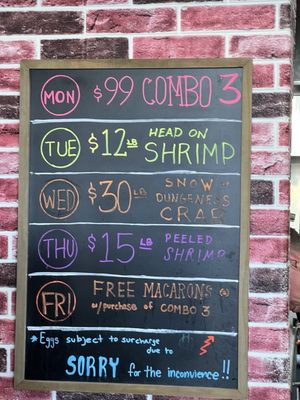 MON $99 COMBO 3
TUE $12 LB HEAD ON
SHRIMP
WED $30 LB SNOW or
DUNGENESS
CRAB
THU $15 LB PEELED
SHRIMP
FRI FREE MACARONS (2)
w/purchase of COMBO 3
* Eggs subject to surcharge
due to
SORRY for the inconvience!!